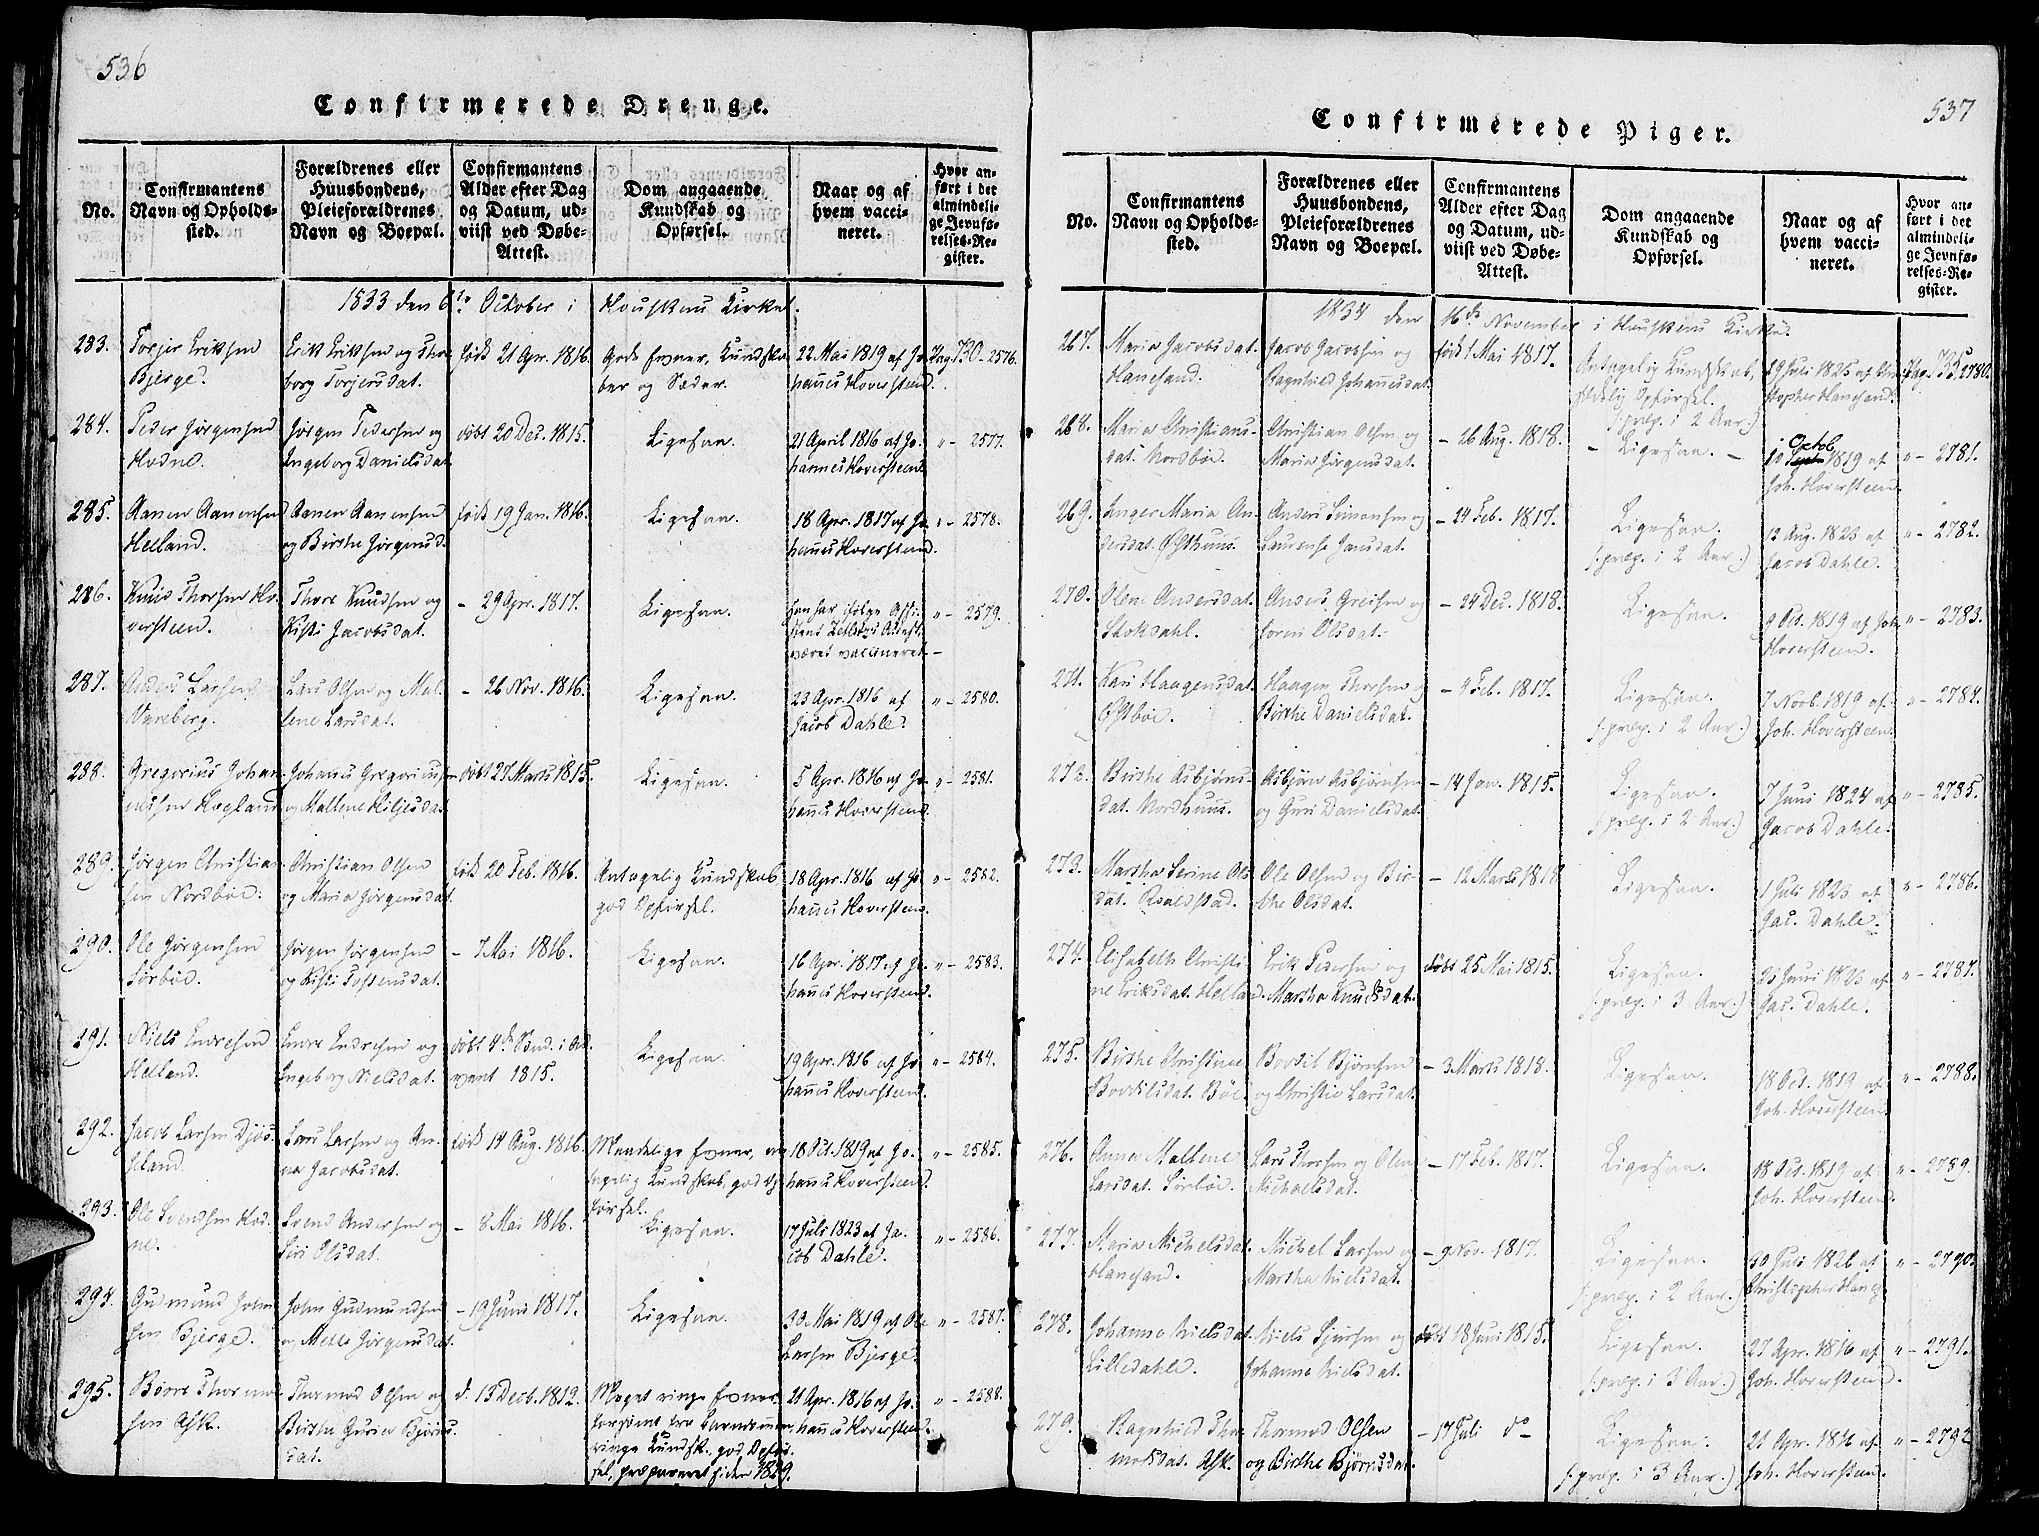 536
Confirmerede Drenge.
No.
Confirmantens
Navn og Opholds-
sted.
Forældrenes eller
Huusbondens,
Pleieforældrenes
Navn og Boepæl.
Confirmantens
Alder efter Dag
og Datum, ud-
viist ved Døbe-
Attest.
Dom angaaende
Kundskab og
Opførsel.
Naar og af
hvem vacci-
neret.
Hvor an-
ført i det
almindeli-
ge Jevnfø-
relses-Re-
gister.
1833 den 6te October i Houskens Kirke.
283. Torjer Eriksen
Bjerge.
Erik Eriksen og Thor-
borg Torjersdat.
født 21 Apr. 1816.
Gode Evner, Kundska-
ber og Sæder.
22 Mai 1819 af Jo-
hannes Hoversteen.
Pag. 730 - 2576.
284. Peder Jørgensen
Hodne.
Jørgen Pedersen og
Ingeborg Danielsdat.
døbt 20 Dec. 1815.
Ligesaa.
21 April 1816 af Jo-
hannes Hoversteen.
" - 2577.
285. Aanen Aanensen
Helland.
Aanen Aanensen
og Birthe Jørgensd.
født 19 Jan. 1816.
Ligesaa.
18 Apr. 1817 af Jo-
hannes Hoversteen.
" - 2578.
286. Knud Thorsen Ho-
versteen.
Thore Knudsen og
Kisti Jacobsdat.
- 29 Apr. 1817.
Ligesaa.
han har ifølge Assi-
stent Zetlitzes Attest
været vaccineret.
" - 2579.
287. Anders Larsen
Vareberg.
Lars Olsen og Mal-
lene Larsdat.
- 26 Nov. 1816.
Ligesaa.
23 Apr. 1816 af
Jacob Dahle.
" - 2580.
288. Gregorius Johan-
nessen Hegland.
Johannes Gregoriuss.
og Mallene Kiljesdat.
døbt 27 Marts 1815.
Ligesaa.
5 Apr. 1816 af Jo-
hannes Hoversteen.
" - 2581.
289. Jørgen Christia-
sen Nordbøe.
Christian Olsen
og Maria Jørgensdat.
født 20 Feb. 1816.
Antagelig Kundskab
god Opførsel.
18 Apr. 1816 af Jo-
hannes Hoversteen.
" - 2582.
290. Ole Jørgensen
Sørbøe.
Jørgen Jørgensen
og Kisti Tostensdat.
- 7 Mai 1816.
Ligesaa.
16 Apr. 1817 af Jo-
hannes Hoversteen.
" - 2583.
291. Niels Endresen
Helland.
Endre Endresen og
Ingeborg Nielsdat.
døbt 4de Sønd. i Ad-
vent 1815.
Ligesaa.
19 Apr. 1816 af Jo-
hannes Hoversteen.
" - 2584.
292. Jacob Larsen Djøs-
eland.
Lars Larsen og An-
na Jacobsdat.
født 14 Aug. 1816.
Maadelige Evner, an-
tagelig Kundskab, god Op-
førsel.
18 Oct. 1819 af Jo-
hannes Hoversteen.
" - 2585.
293. Ole Svendsen Hod-
ne.
Svend Andersen og
Siri Olsdat.
- 8 Mai 1816.
Ligesaa.
17 Juli 1823 af Ja-
cob Dahle.
" - 2586.
294. Gudmund John-
sen Bjerge.
John Gudmundsen
og Mette Jørgensdat.
- 19 Juni 1817.
Ligesaa.
30 Mai 1819 af Ole
Larsen Bjerge.
" - 2587.
295. Børre Thormo-
sen Ask.
Thormod Olsen og
Birthe Bjørns-
dat.
d. 13 Decb. 1812.
Meget ringe Evner,
forsømt fra Barndommen,
ringe Kundsk. god Opfør-
sel, præpareret siden 1829.
21 Apr. 1816 af Jo-
hannes Hoversteen.
" - 2588.
537
Confirmerede Piger.
No.
Confirmantens
Navn og Opholds-
sted.
Forældrenes eller
Huusbondens,
Pleieforældrenes
Navn og Boepæl.
Confirmantens
Alder efter Dag
og Datum, ud-
viist ved Døbe-
Attest.
Dom angaaende
Kundskab og
Opførsel.
Naar og af
hvem vacci-
neret.
Hvor an-
ført i det
almindeli-
ge Jevnfø-
relses-Re-
gister.
1834 den 16de November i Houskens Kirke.
267. Maria Jacobsdat.
Hanesand.
Jacob Jacobsen og
Ragnhild Johannesdat.
født 1 Mai 1817.
Antagelig Kundskab,
sædelig Opførsel.
(præp. i 2 Aar.)
29 Juli 1825 af Chri-
stopher Hanesand.
Pag. 735, 2780.
268. Maria Christians-
dat. Nordbøe.
Christian Olsen og
Maria Jørgensdat.
- 26 Aug. 1818.
- Ligesaa. -
Octob.
10 Sept. 1819 af
Joh. Hoversteen.
" - 2781.
269. Inger Maria An-
dersdat. Østhuus.
Anders Simonsen og
Laurense Jansdat.
- 24 Feb. 1817.
Ligesaa.
(præp. i 2 Aar.)
12 Aug. 1823 af
Jacob Dahle.
" - 2782.
270. Olene Andersdat.
Stokdahl.
Anders Greisen og
Torni Olsdat.
- 24 Dec. 1818.
Ligesaa.
9 Oct. 1819 af Joh.
Hoversteen.
" - 2783.
271. Kari Haagensdat.
Østbøe.
Haagen Thorsen og
Birthe Danielsdat.
- 9 Feb. 1817.
Ligesaa.
(præp. i 2 Aar.)
7 Novb. 1819 af
Joh. Hoversteen.
" - 2784.
272. Birthe Asbjørns-
dat. Nordhuus.
Asbjørn Asbjørnsen
og Guri Danielsdat.
- 14 Jan. 1815.
Ligesaa.
(præp. i 2 Aar.)
7 Juni 1824 af
Jacob Dahle.
" - 2785.
273. Martha Serine Ols-
dat. Roaldstad.
Ole Olsen og Bir-
the Olsdat.
- 12 Marts 1818
Ligesaa.
1 Juli 1823 af
Jac. Dahle.
" - 2786.
274. Elisabeth Christi-
ne Eriksdat. Helland.
Erik Pedersen og
Martha Knudsdat.
døbt 25 Mai 1815.
Ligesaa.
(præp. i 3 Aar.)
23 Juni 1823 af
Jac. Dahle.
" - 2787.
275. Birthe Christine
Bordilsdat. Bøe.
Bordil Bjørnsen
og Christie Larsdat.
- 3 Marts 1818.
Ligesaa.
18 Oct. 1819 af
Joh. Hoversteen.
" - 2788.
276. Anna Mallene
Larsdat. Sørbøe.
Lars Thorsen og Olene
Michaelsdat.
- 17 Feb. 1817.
Ligesaa.
18 Oct. 1819 af
Joh. Hoversteen.
" - 2789.
277. Maria Michelsdat.
Hanesand.
Michel Larsen og
Martha Nielsdat.
- 9 Nov. 1817.
Ligesaa.
(præp. i 2 Aar.)
30 Juli 1826 af
Christopher Hanes.
" - 2790.
278. Johanna Nielsdat.
Lilledahle.
Niels Sjursen og
Johanna Nielsdat.
døbt 18 Juni 1815.
Ligesaa.
(præp. i 3 Aar.)
27 Apr. 1816 af
Joh. Hoversteen.
" - 2791.
279. Ragnhild Thor-
modsdat. Ask.
Thormod Olsen
og Birthe Bjørnsdat.
- 17 Juli do -
Ligesaa.
(præp. i 3 Aar.)
21 Apr. 1816 af
Joh. Hoversteen.
" - 2792